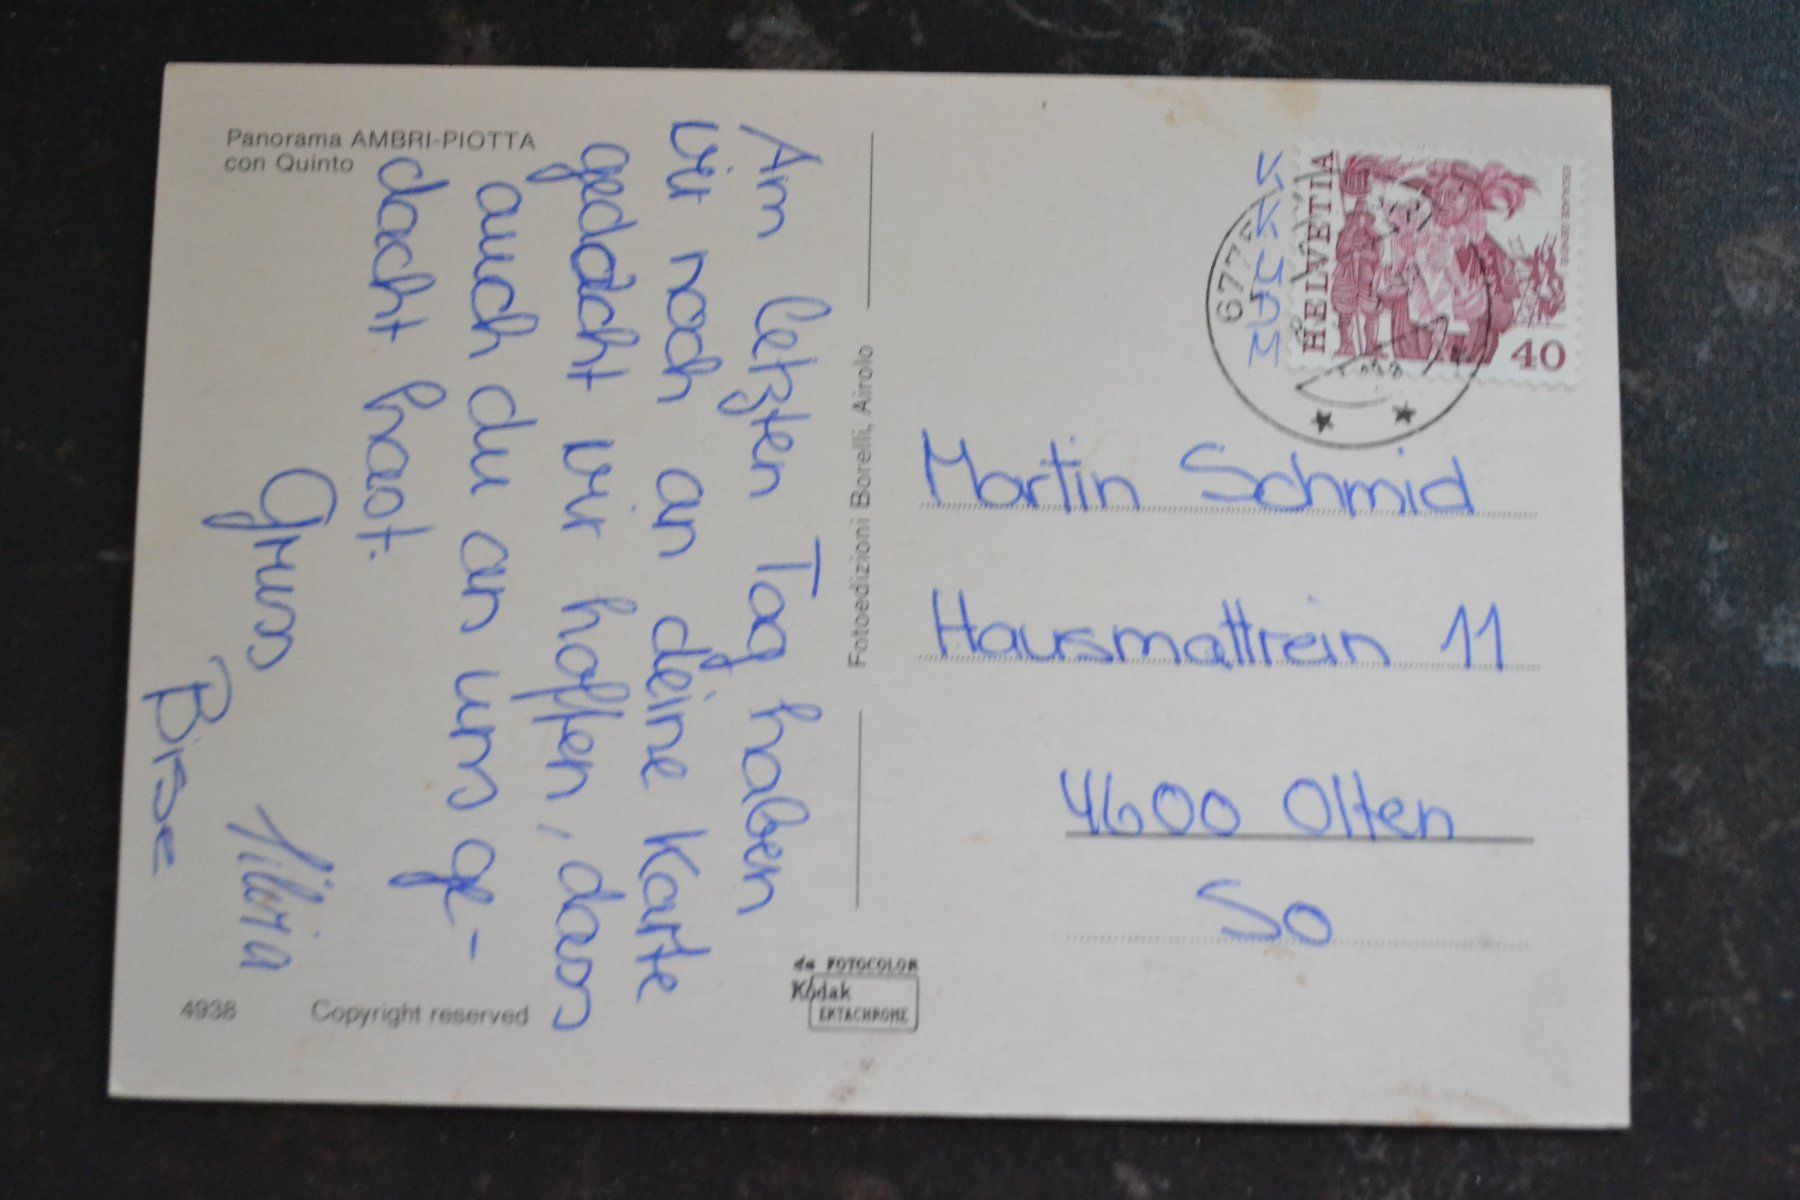 Panorama AMBRI-PIOTTA
con Quinto
Am letzten Tag haben
wir noch an deine Karte
gedacht wir hoffen, dass
auch du an uns ge-
dacht hast.
Gruss
Silvia
Bise
4938
Copyright reserved
Fotoedizioni Borelli, Airolo
da FOTOCOLOR
Kodak
EKTACHROME
HELVETIA
ESCALADE GENÈVE
40
677
Martin Schmid
Hausmattrein 11
4600 Olten
SO